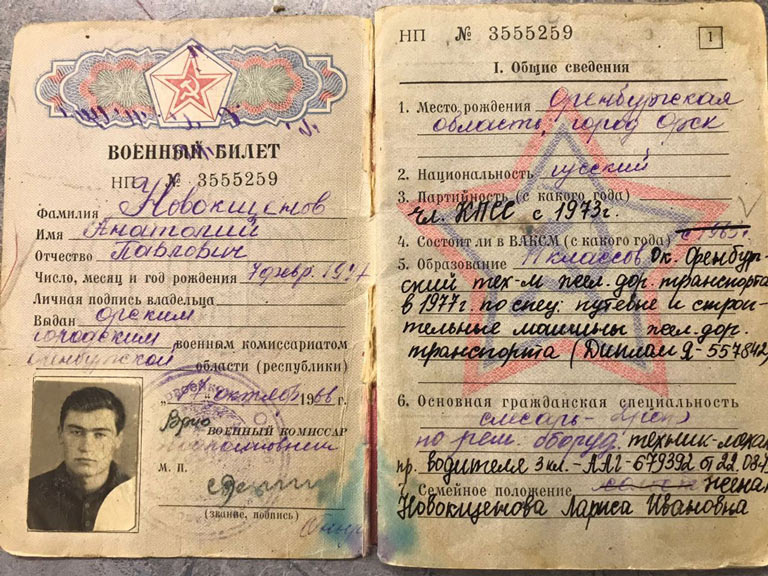 ВОЕННЫЙ БИЛЕТ
НП № 3555259
Фамилия Новокщенов
Имя Анатолий
Отчество Павлович
Число, месяц и год рождения 7 февр.
Личная подпись владельца
Выдан Орским
городским военным комиссариатом
Оренбургской области (республики)
октября 1966 г.
Врио ВОЕННЫЙ КОМИССАР
М. П.
(звание, подпись)
НП № 3555259 1
I. Общие сведения
1. Место рождения Оренбургская
область, город Орск
2. Национальность русский
3. Партийность (с какого года)
Чл. КПСС с 1973г.
4. Состоит ли в ВЛКСМ (с какого года) с 1965г
5. Образование 11 классов Ок. Оренбур-
ский тех-м жел. дор. транспорта
в 1977г. по спец: путевые и строи-
тельные машины жел. дор.
транспорта (Диплом Я-557842)
6. Основная гражданская специальность
слесарь-
по рем. оборуд. техник-механ
пр. водителя 3 кл.-ААГ-679392 от 22.08
7. Семейное положение женат
Новокщенова Лариса Ивановна